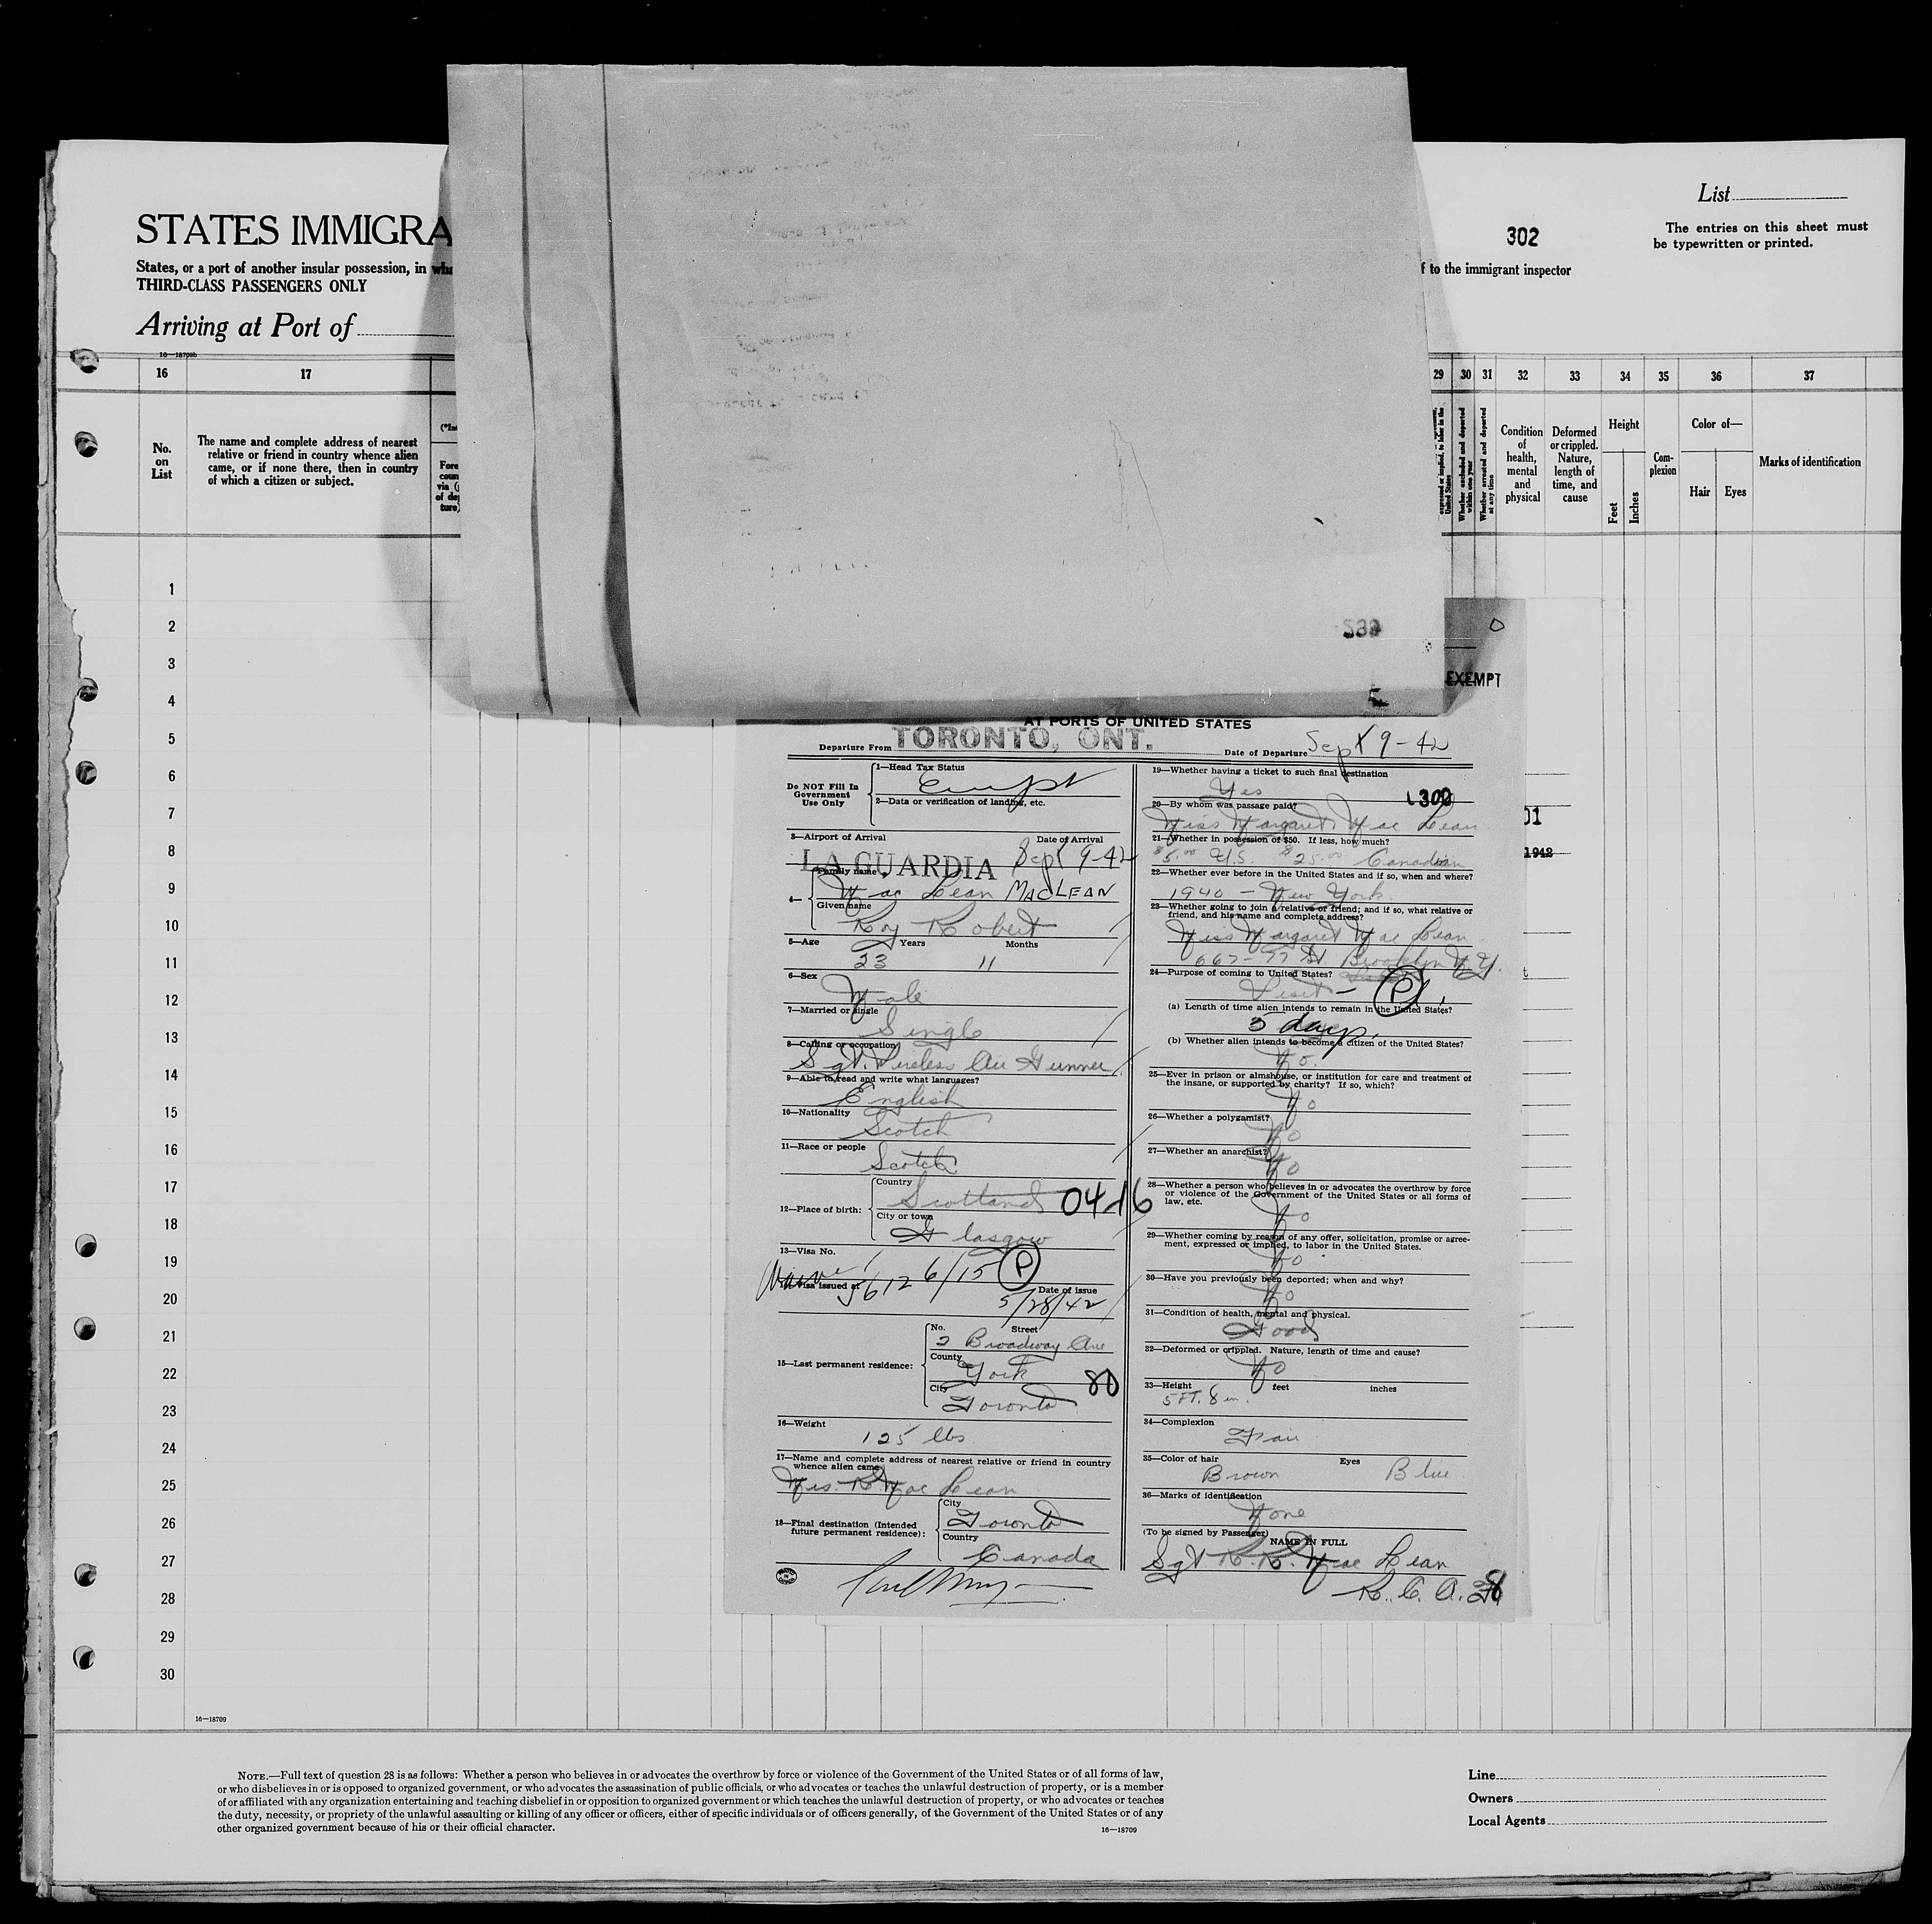 List
STATES IMMIGRA
302
The entries on this sheet must
be typewritten or printed.
States, or a port of another insular possession, in wha
f to the immigrant inspector
THIRD-CLASS PASSENGERS ONLY
Arriving at Port of
16—18709b
16 17 29 30 31 32 33 34 35 36 37
No. on List
The name and complete address of nearest
relative or friend in country whence alien
came, or if none there, then in country
of which a citizen or subject.
(*Int
Fore
coun
via (
of de
ture)
expressed or implied, to labor in the United States
Whether excluded and deported within one year
Whether arrested and deported at any time
Condition of health, mental and physical
Deformed or crippled. Nature, length of time, and cause
Height
Feet
Inches
Com-plexion
Color of—
Hair
Eyes
Marks of identification
1
2
3
4
5
6
7
8
9
10
11
12
13
14
15
16
17
18
19
20
21
22
23
24
25
26
27
28
29
30
EXEMPT
01
1942
AT PORTS OF UNITED STATES
Departure From TORONTO, ONT.
Date of Departure Sept 9-42
Do NOT Fill In
Government
Use Only
1—Head Tax Status
Exempt
2—Data or verification of landing, etc.
3—Airport of Arrival Date of Arrival
LA GUARDIA Sept 9-42
4— Family name
Mac Lean MACLEAN
Given name
Roy Robert
5—Age Years Months
23 11
6—Sex
Male
7—Married or single
Single
8—Calling or occupation
Sgt. Wireless Air Gunner
9—Able to read and write what languages?
English
10—Nationality
Scotch
11—Race or people
Scotch
12—Place of birth:
Country
Scotland 0416
City or town
Glasgow
13—Visa No.
5612 6/15 P
14—Visa issued at Date of issue
5/28/42
15—Last permanent residence:
No. Street
2 Broadway Ave
County
York 80
City
Toronto
16—Weight
125 lbs
17—Name and complete address of nearest relative or friend in country
whence alien came
Mrs. R. Mac Lean
18—Final destination (Intended
future permanent residence):
City
Toronto
Country
Canada
19—Whether having a ticket to such final destination
Yes
302
20—By whom was passage paid?
Miss Margaret Mac Lean
21—Whether in possession of $50. If less, how much?
$5.00 U.S. $25.00 Canadian
22—Whether ever before in the United States and if so, when and where?
1940 - New York.
23—Whether going to join a relative or friend; and if so, what relative or
friend, and his name and complete address?
Miss Margaret Mac Lean
667-77 St. Brooklyn N.Y.
24—Purpose of coming to United States?
Visit - P
(a) Length of time alien intends to remain in the United States?
5 days.
(b) Whether alien intends to become a citizen of the United States?
No.
25—Ever in prison or almshouse, or institution for care and treatment of
the insane, or supported by charity? If so, which?
No
26—Whether a polygamist?
No
27—Whether an anarchist?
No
28—Whether a person who believes in or advocates the overthrow by force
or violence of the Government of the United States or all forms of
law, etc.
No
29—Whether coming by reason of any offer, solicitation, promise or agree-
ment, expressed or implied, to labor in the United States.
No
30—Have you previously been deported; when and why?
No
31—Condition of health, mental and physical.
Good
32—Deformed or crippled. Nature, length of time and cause?
No
33—Height feet inches
5 FT. 8 in.
34—Complexion
Fair
35—Color of hair Eyes
Brown Blue
36—Marks of identification
None
(To be signed by Passenger)
NAME IN FULL
Sgt R. R. Mac Lean
R. C. A. F.
16—18709
NOTE.—Full text of question 28 is as follows: Whether a person who believes in or advocates the overthrow by force or violence of the Government of the United States or of all forms of law,
or who disbelieves in or is opposed to organized government, or who advocates the assassination of public officials, or who advocates or teaches the unlawful destruction of property, or is a member
of or affiliated with any organization entertaining and teaching disbelief in or opposition to organized government or which teaches the unlawful destruction of property, or who advocates or teaches
the duty, necessity, or propriety of the unlawful assaulting or killing of any officer or officers, either of specific individuals or of officers generally, of the Government of the United States or of any
other organized government because of his or their official character.
16—18709
Line
Owners
Local Agents